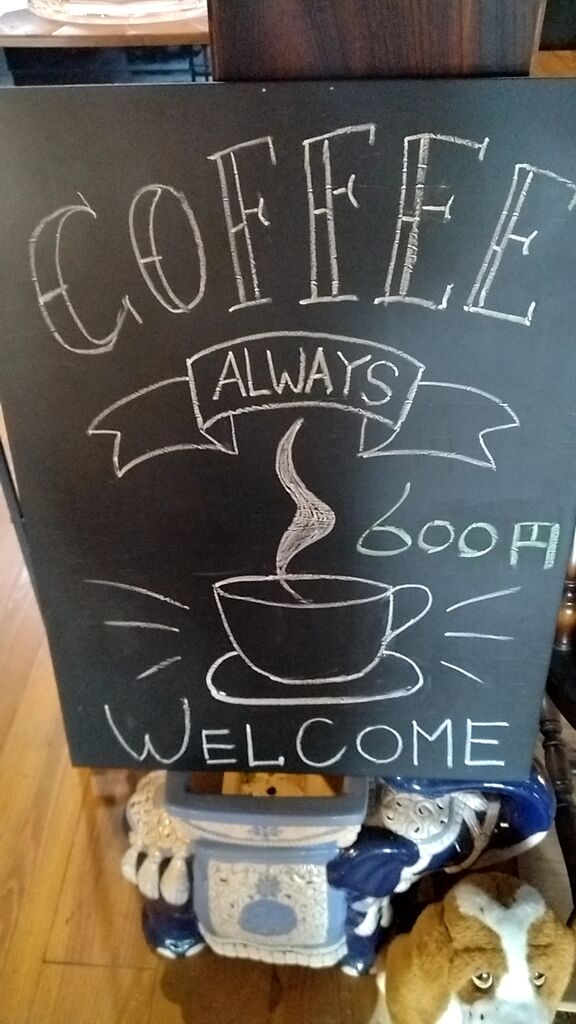 COFFEE
ALWAYS
600円
WELCOME